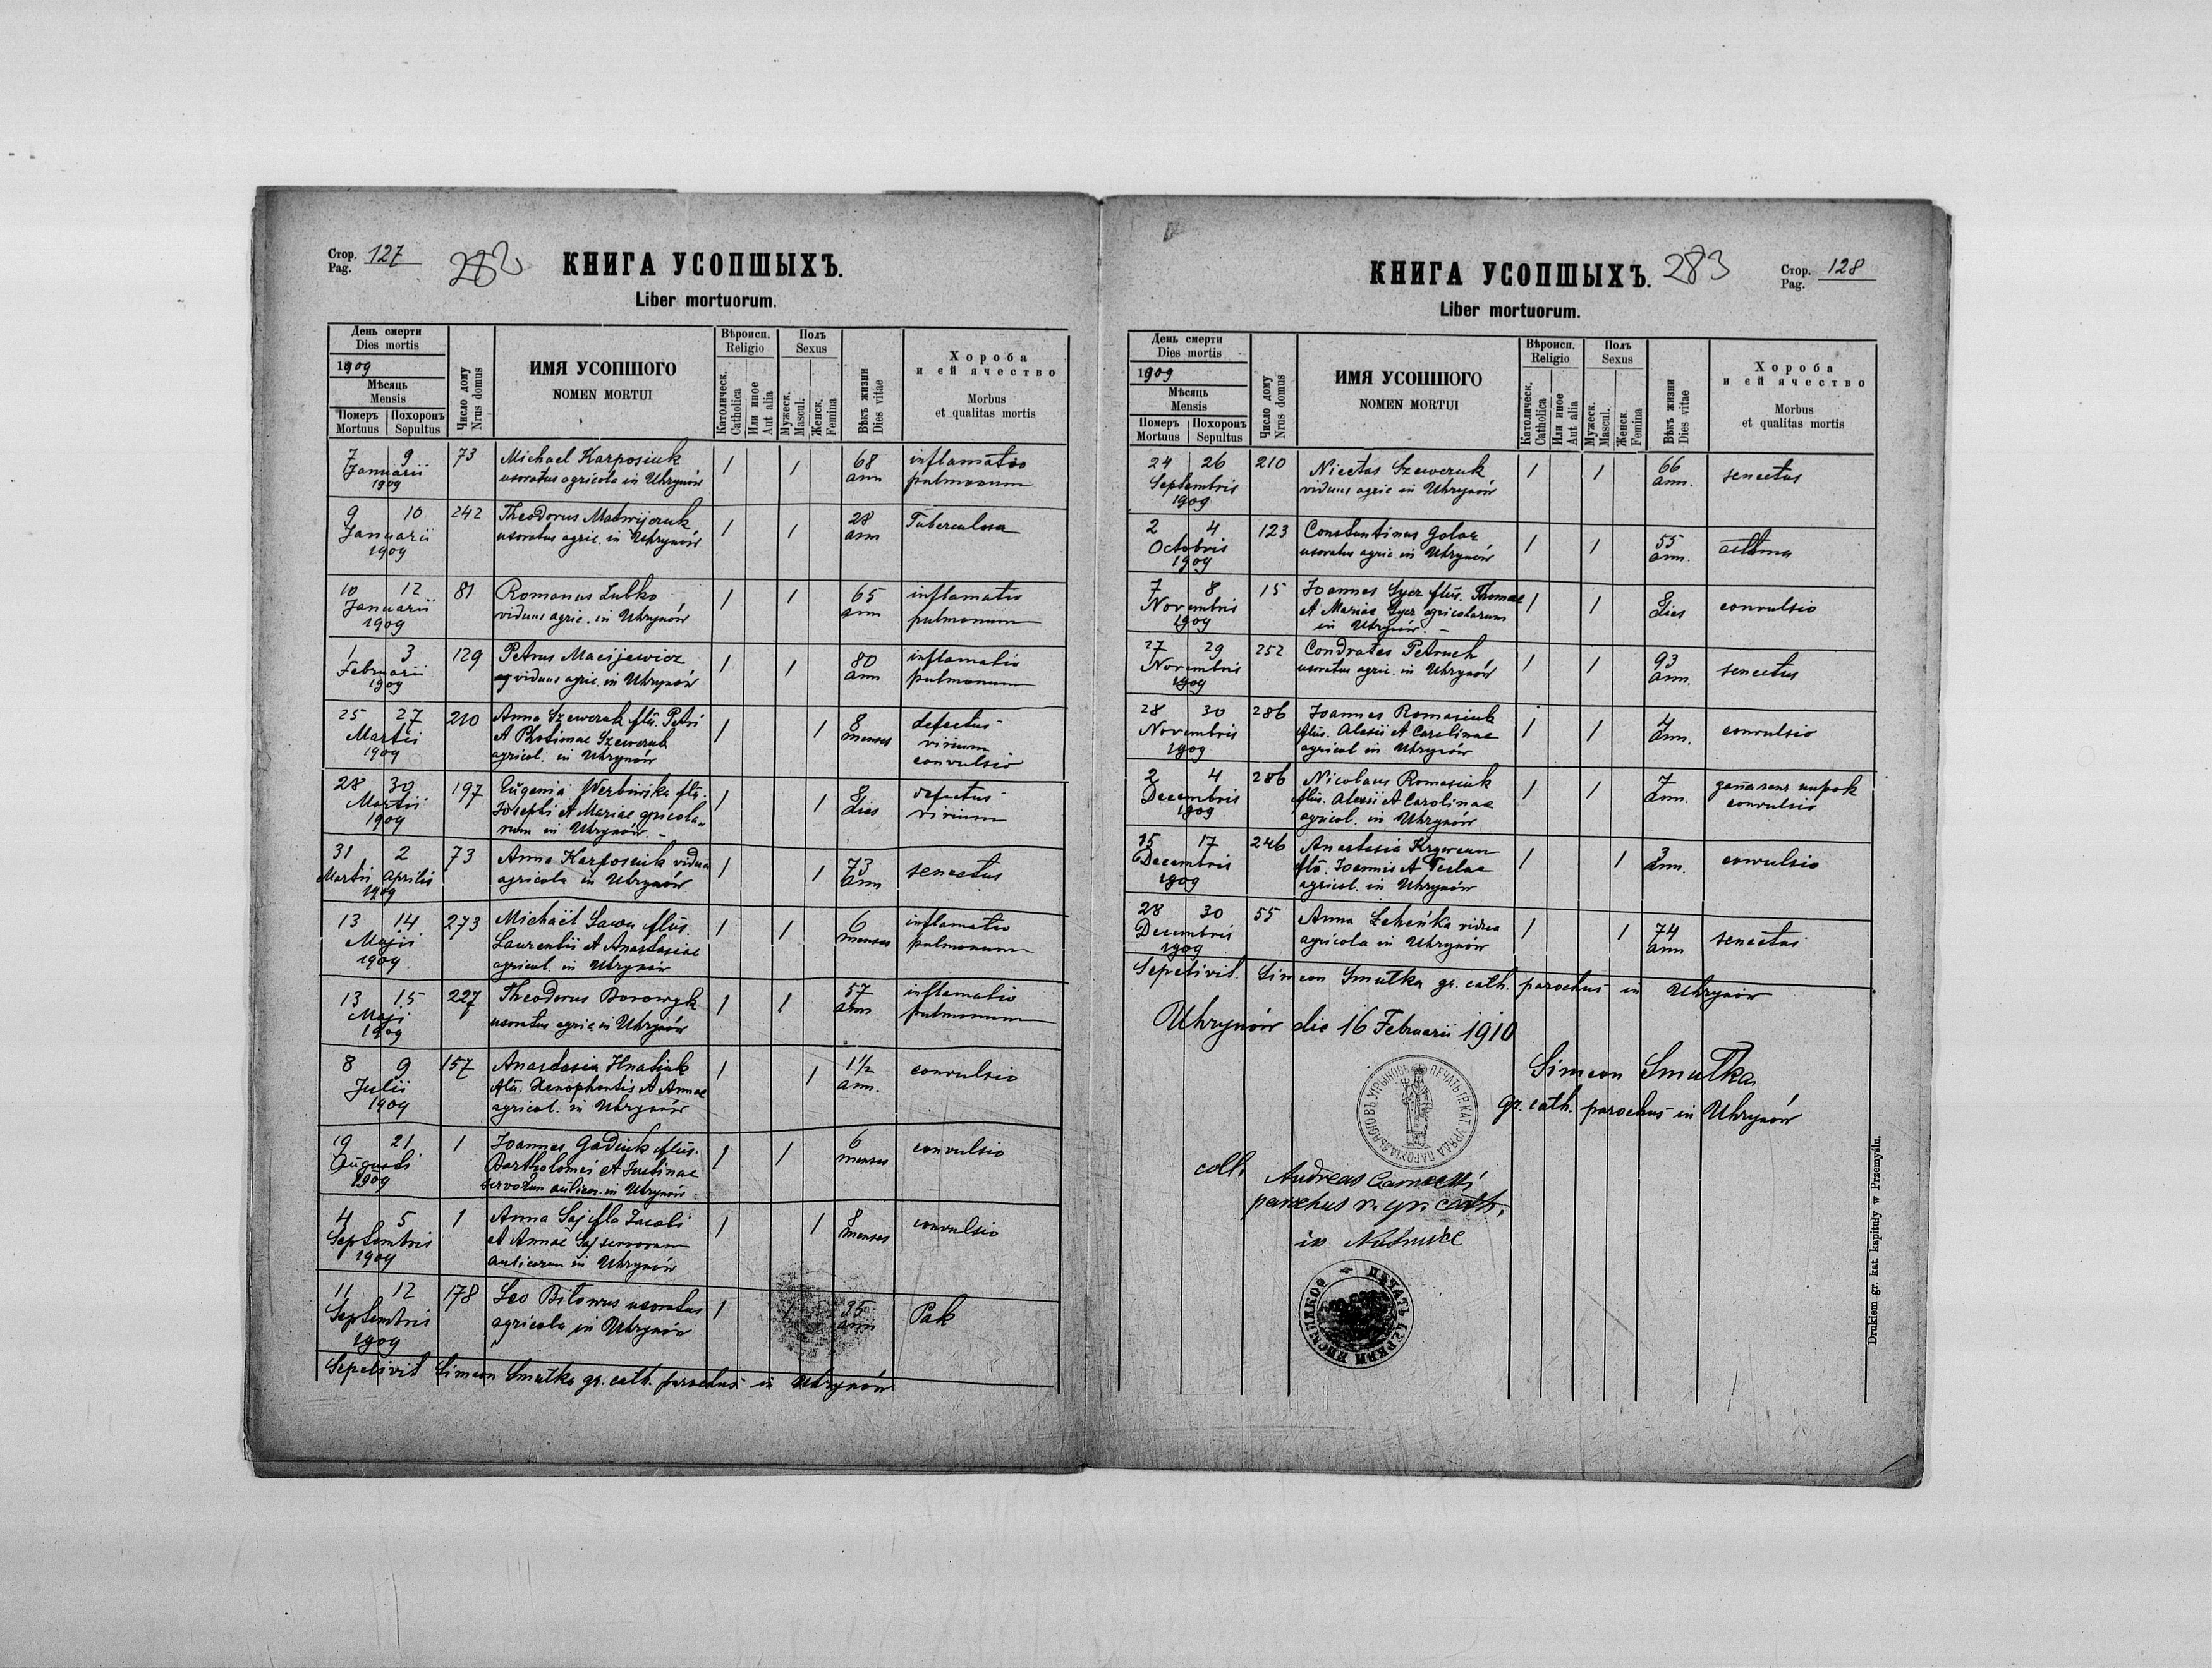 Стор. Pag. 127
282
КНИГА УСОПШЫХЪ.
Liber mortuorum.
День смерти
Dies mortis
1909
Мѣсяць
Mensis
Померъ Mortuus
Похоронъ Sepultus
Число дому
Nrus domus
ИМЯ УСОПШОГО
NOMEN MORTUI
Вѣроисп.
Religio
Католическ.
Catholica
Или иное
Aut alia
Полъ
Sexus
Мужеск.
Mascul.
Женск.
Femina
Вѣкъ жизни
Dies vitae
Хороба
и єй ячество
Morbus
et qualitas mortis
7 9 73 Michael Karposiuk 1 1 68 inflamatio
Januarii uxoratus agricola in Uhrynów ann pulmonum
1909
9 10 242 Theodorus Matwijczuk 1 1 28 Tuberculosa
Januarii uxoratus agric. in Uhrynów ann
1909
10 12 81 Romanus Lubko 1 1 65 inflamatio
Januarii viduus agric. in Uhrynów ann pulmonum
1909
1 3 129 Petrus Macijewicz 1 1 80 inflamatio
Februarii viduus agric. in Uhrynów ann pulmonum
1909
25 27 210 Anna Szewczuk flia. Petri 1 1 8 defectus
Martii et Photinae Szewczuk menses virium
1909 agricol. in Uhrynów convulsio
28 30 197 Eugenia Werbińska flia. 1 1 8 defectus
Martii Josephi et Mariae agricola- dies virium
1909 rum in Uhrynów. -
31 2 73 Anna Karposiuk vidua 1 1 73 senectus
Martii Aprilis agricola in Uhrynów ann
1909
13 14 273 Michaël Sawa flius. 1 1 6 inflamatio
Majii Laurentii et Anastasiae menses pulmonum
1909 agricol. in Uhrynów
13 15 227 Theodorus Borowyk 1 1 57 inflamatio
Maji uxoratus agric in Uhrynów ann pulmonum
1909
8 9 157 Anastasia Hnatiuk 1 1 1½ convulsio
Julii flia. Xenophontis et Annae ann.
1909 agricol. in Uhrynów
19 21 1 Joannes Gadiuk flius. 1 1 6 convulsio
Augusti Bartholomei et Justinae menses
1909 servorum aulicor. in Uhrynów
4 5 1 Anna Saj flia Jacobi 1 1 8 convulsio
Septembris et Annae Saj servorum menses
1909 aulicorum in Uhrynów
11 12 178 Leo Bilowus uxoratus 1 1 35 Рак
Septembris agricola in Uhrynów ann
1909
Sepelivit Simeon Smutka gr. cath. parochus in Uhrynów
283
Стор. Pag. 128
КНИГА УСОПШЫХЪ.
Liber mortuorum.
День смерти
Dies mortis
1909
Мѣсяць
Mensis
Померъ Mortuus
Похоронъ Sepultus
Число дому
Nrus domus
ИМЯ УСОПШОГО
NOMEN MORTUI
Вѣроисп.
Religio
Католическ.
Catholica
Или иное
Aut alia
Полъ
Sexus
Мужеск.
Mascul.
Женск.
Femina
Вѣкъ жизни
Dies vitae
Хороба
и єй ячество
Morbus
et qualitas mortis
24 26 210 Nicetas Szewczuk 1 1 66 senectus
Septembris viduus agric in Uhrynów ann.
1909
2 4 123 Constantinus Golac 1 1 55 astma
Octobris uxoratus agric in Uhrynów ann.
1909
7 8 15 Joannes Sycz flius. Thomae 1 1 8 convulsio
Novembris et Mariae Sycz agricolarum dies
1909 in Uhrynów. -
27 29 252 Condrates Petruch 1 1 93 senectus
Novembris uxoratus agric. in Uhrynów ann.
1909
28 30 286 Joannes Romasiuk 1 1 4 convulsio
Novembris flius. Alexii et Carolinae ann.
1909 agricol in Uhrynów
2 4 286 Nicolaus Romasiuk 1 1 7
Decembris flius. Alexii et Carolinae ann. convulsio
1909 agricol. in Uhrynów
15 17 246 Anastasia Krywcun 1 1 3 convulsio
Decembris flia. Joannis et Teclae ann.
1909 agricol. in Uhrynów
28 30 55 Anna Łeheńka vidua 1 1 74 senectus
Decembris agricola in Uhrynów ann
1909
Sepelivit. Simeon Smutka gr. cath. parochus in Uhrynów
Uhrynów die 16 Februarii 1910
Simeon Smutka
gr. cath. parochus in Uhrynów
coll.
Andreas
parochus r. gr. cath.
in
Drukiem gr. kat. kapituły w Przemyślu.